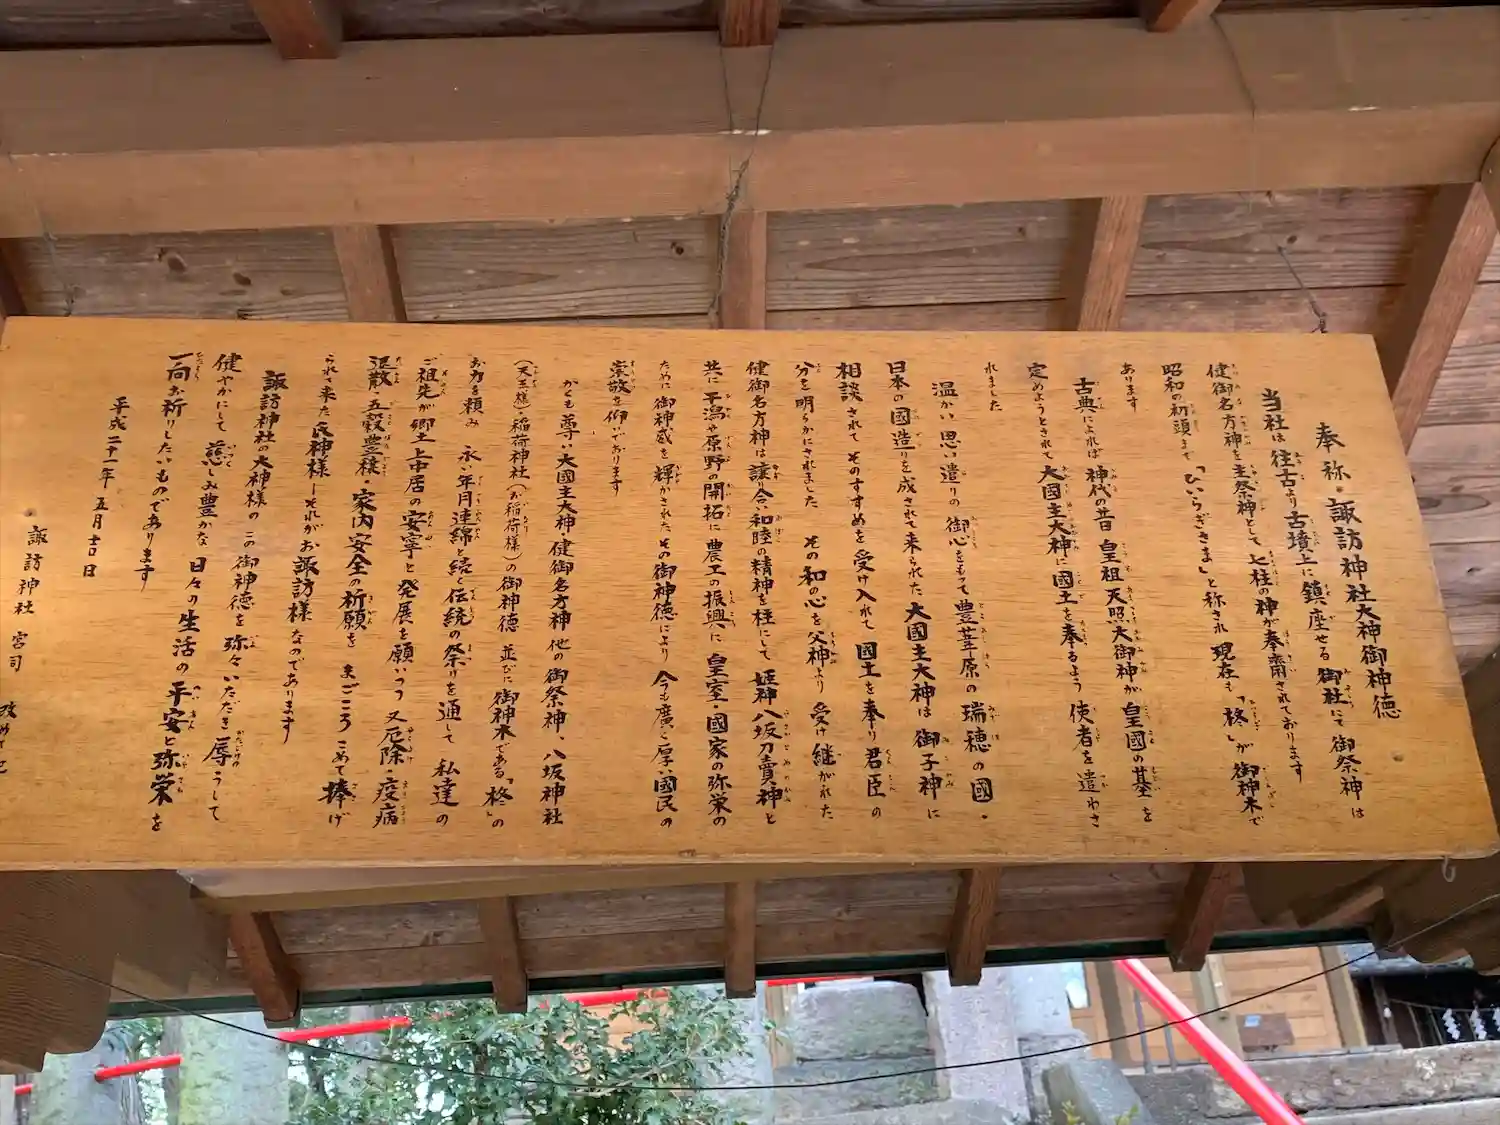 奉称・諏訪神社大神御神徳
当社は往古より古墳上に鎮座せる 御社にて 御祭神は
健御名方神を主祭神として 七柱の神が奉齋されております
昭和の初頭まで「ひいらぎさま」と称され 現在も「柊」が御神木で
あります
古典によれば 神代の昔 皇祖天照大御神が 皇國の基を
定めようとされて 大國主大神に 國土を奉るよう 使者を遣わさ
れました
温かい思い遣りの 御心をもって 豊葦原の 瑞穂の國・
日本の國造りを成されて来られた 大國主大神は 御子神に
相談されて そのすすめを 受け入れて 國土を奉り 君臣の
分を明らかにされました その和の心を 父神より 受け継がれた
健御名方神は 譲り合い和睦の精神を柱にして 姫神八坂刀賣神と
共に 干潟や原野の開拓に 農工の振興に 皇室・國家の弥栄の
ために 御神威を輝かされた その御神徳により 今も廣く厚い國民の
崇敬を仰いでおります
かくも尊い大國主大神・健御名方神 他の御祭神、八坂神社
(天王様)・稲荷神社(お稲荷様)の御神徳 並びに 御神木である「柊」の
お力を頼み 永い年月連綿と続く伝統の祭りを通して 私達の
ご祖先が郷土上中居の安寧と 発展を願いつつ 又厄除・疫病
退散・五穀豊穣・家内安全の祈願を まごころこめて捧げ
られて来た氏神様―それがお諏訪様なのであります
諏訪神社の大神様の この御神徳を 弥々いただき 辱うして
健やかにして 慈しみ豊かな 日々の生活の平安と弥栄を
一向お祈りしたいものであります
平成二十一年 五月吉日
諏訪神社 宮司
改めて記